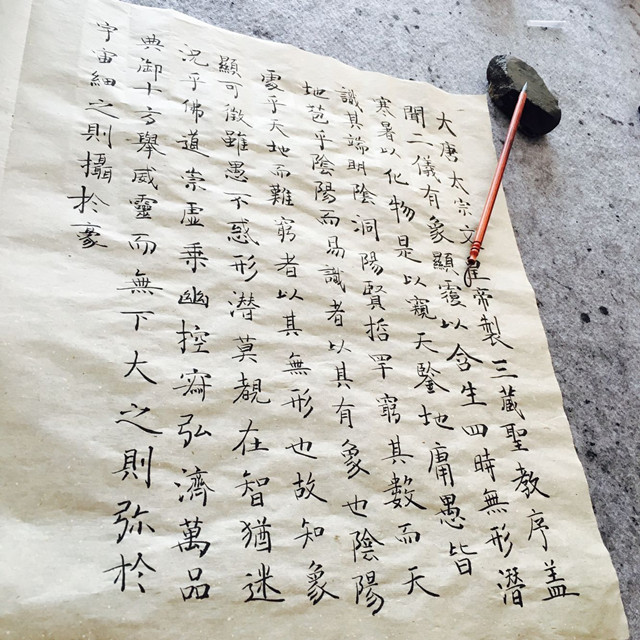 大唐太宗文皇帝製三藏聖教序盖
聞二儀有象顯覆以含生四時無形潛
寒暑以化物是以窺天鑒地庸愚皆
識其端明陰洞陽賢哲罕窮其數而天
地苞乎陰陽而易識者以其有象也陰陽
處乎天地而難窮者以其無形也故知象
顯可徵雖愚不惑形潛莫覩在智猶迷
況乎佛道崇虛乘幽控寂弘濟萬品
典御十方舉威靈而無下大之則弥於
宇宙細之則攝於豪